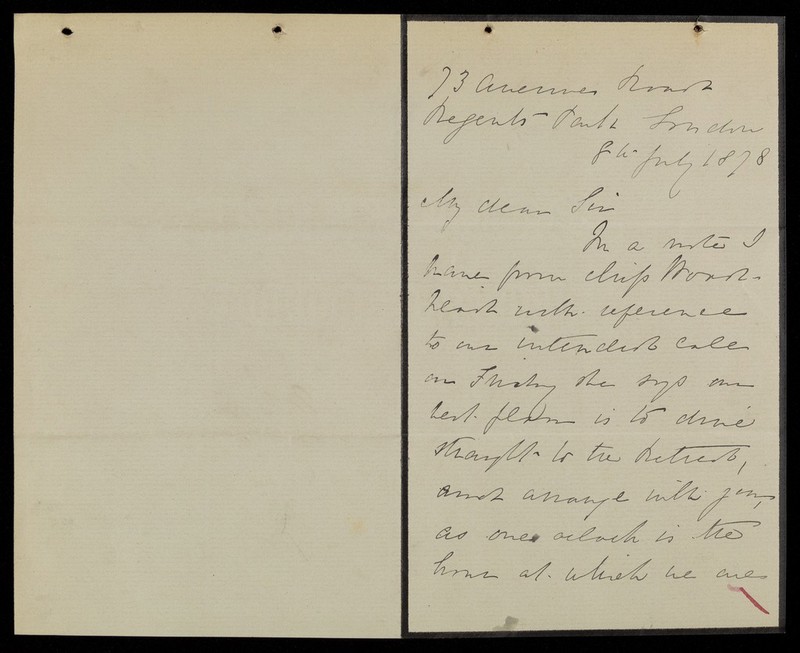 73 Avenue Road
Regents Park London
8th July 1878
My dear Sir
In a note I
have from Miss Wood-
head with reference
to our intended call
on Friday she says our
best plan is to drive
straight to the Retreat,
and arrange with you,
as one oclock is the
hour at which we are